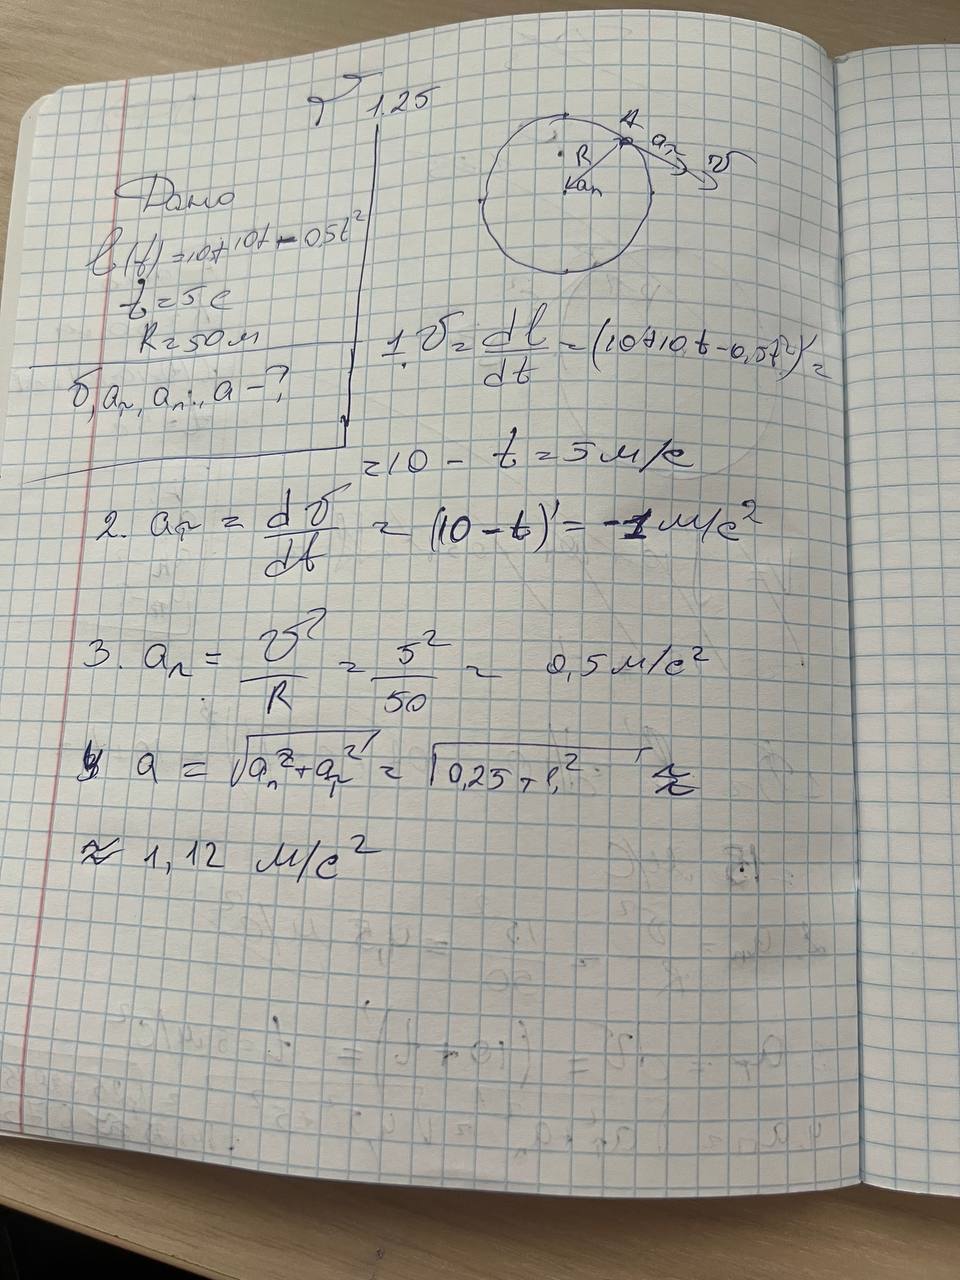 1.25
A
aτ
υ
R
an
Дано
l(t) = 10+10t - 0,5t²
t = 5 с
R = 50 м
υ, aτ, an, a - ?
1. υ = dl/dt = (10+10t - 0,5t²)' =
= 10 - t = 5 м/с
2. aτ = dυ/dt = (10 - t)' = -1 м/с²
3. an = υ²/R = 5²/50 = 0,5 м/с²
4 a = √(an² + aτ²) = √(0,25 + 1,²) ≈
≈ 1,12 м/с²